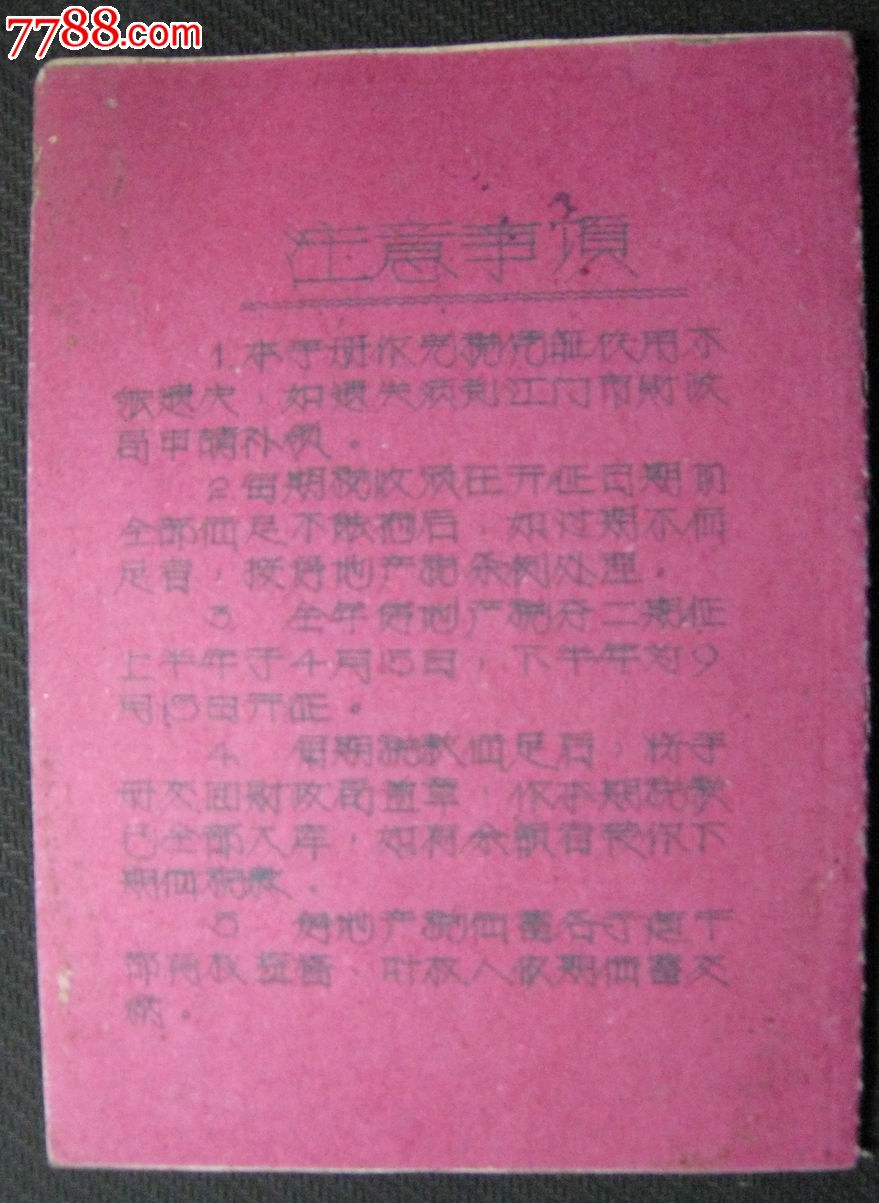 7788.com
注意事項
1.本手册作完税凭証使用不
能遗失,如遗失须到江门市财政
局申請补领。
2.每期税收须在开征日期前
全部储足不能拖后,如过期不储
足者,按房地产税条例处理。
3. 全年房地产税分二期征
上半年于4月15日,下半年为9
月15日开征。
4. 每期税款储足后,将手
册交回财政局盖章,作本期税款
已全部入库,如有余额者转作下
期储税款。
5 房地产税储蓄